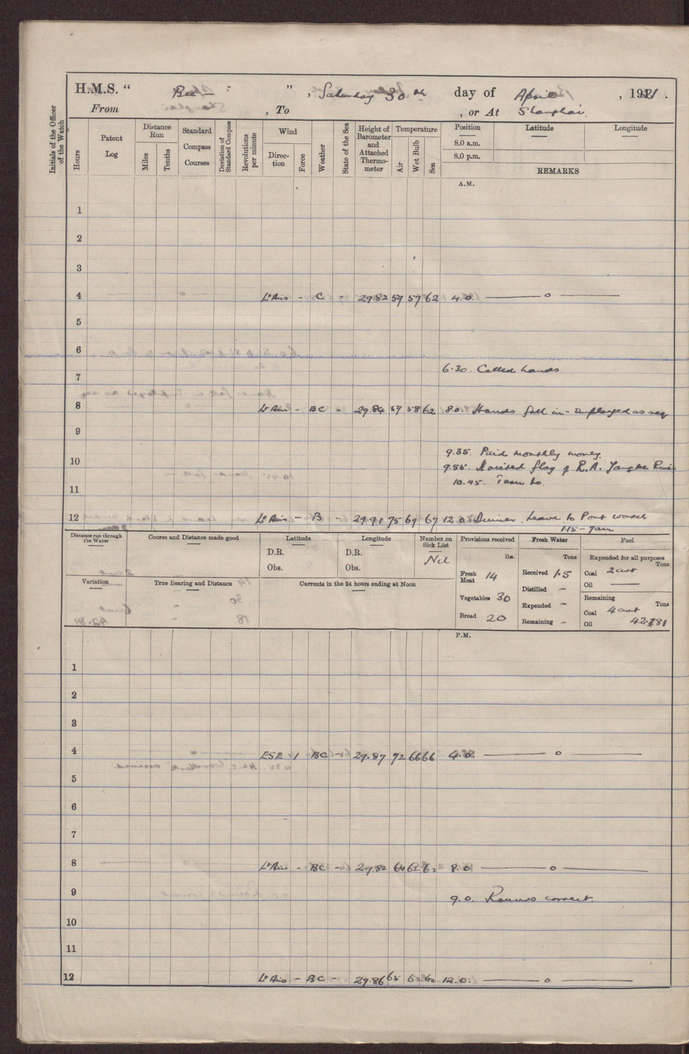 H.M.S. " Bee " , Saturday 30th day of April , 1921.
From , To , or At Shanghai
Initials of the Officer of the Watch
Hours
Patent Log
Distance Run
Miles
Tenths
Standard Compass Courses
Deviation of Standard Compass
Revolutions per minute
Wind
Direction
Force
Weather
State of the Sea
Height of Barometer and Attached Thermometer
Temperature
Air
Wet Bulb
Sea
Position Latitude Longitude
8.0 a.m.
8.0 p.m.
REMARKS
A.M.
1
2
3
4 Lt Airs - C - 29.82 59 57 62 4.0. — o —
5
6
6.30. Called hands
7
8 Lt Airs - BC - 29.84 59 58 62 8.0. Hands fell in - employed as req
9
9.35. Paid monthly money.
10 9.55. Hoisted flag of R.A. Yangtse
10.45.
11
12 Lt Airs - B - 29.91 75 69 67 12.0. Dinner. Leave to Port
1.15 - 7am
Distance run through the Water
Course and Distance made good
Latitude
D.R.
Obs.
Longitude
D.R.
Obs.
Number on Sick List
Nil
Provisions received
lbs.
Fresh Meat 14
Vegetables 30
Bread 20
Fresh Water
Tons
Received 1.5
Distilled -
Expended -
Remaining -
Fuel
Expended for all purposes
Tons
Coal 2 cwt
Oil —
Remaining
Tons
Coal 4 cwt
Oil 42.881
Variation
True Bearing and Distance
Currents in the 24 hours ending at Noon
P.M.
1
2
3
4 ESE 1 BC - 29.87 72 66 66 4.0. — o —
5
6
7
8 Lt Airs - BC - 29.82 64 8.0. — o —
9
9.0. Rounds correct.
10
11
12 Lt Airs - BC - 29.86 12.0. — o —